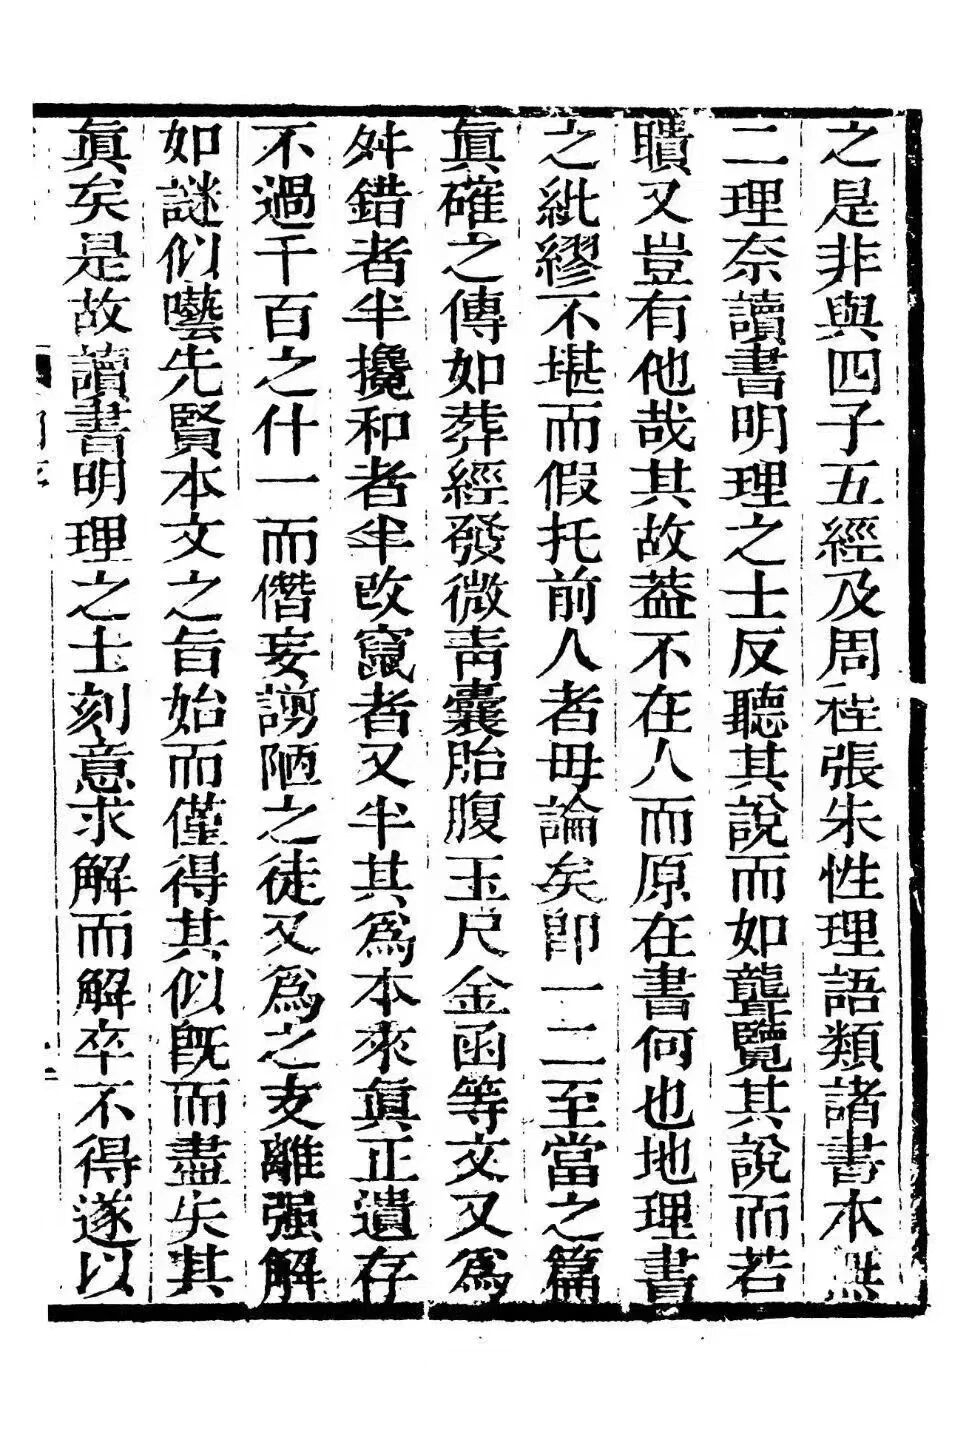 之是非與四子五經及周程張朱性理語類諸書本無
二理奈讀書明理之士反聽其說而如聾覽其說而若
瞶又豈有他哉其故葢不在人而原在書何也地理書
之紕繆不堪而假托前人者毋論矣卽一二至當之篇
眞確之傳如葬經發微靑囊胎腹玉尺金函等文又爲
舛錯者半攙和者半改竄者又半其爲本來眞正遺存
不過千百之什一而僭妄謭陋之徒又爲之支離强解
如謎似囈先賢本文之旨始而僅得其似旣而盡失其
眞矣是故讀書明理之士刻意求解而解卒不得遂以